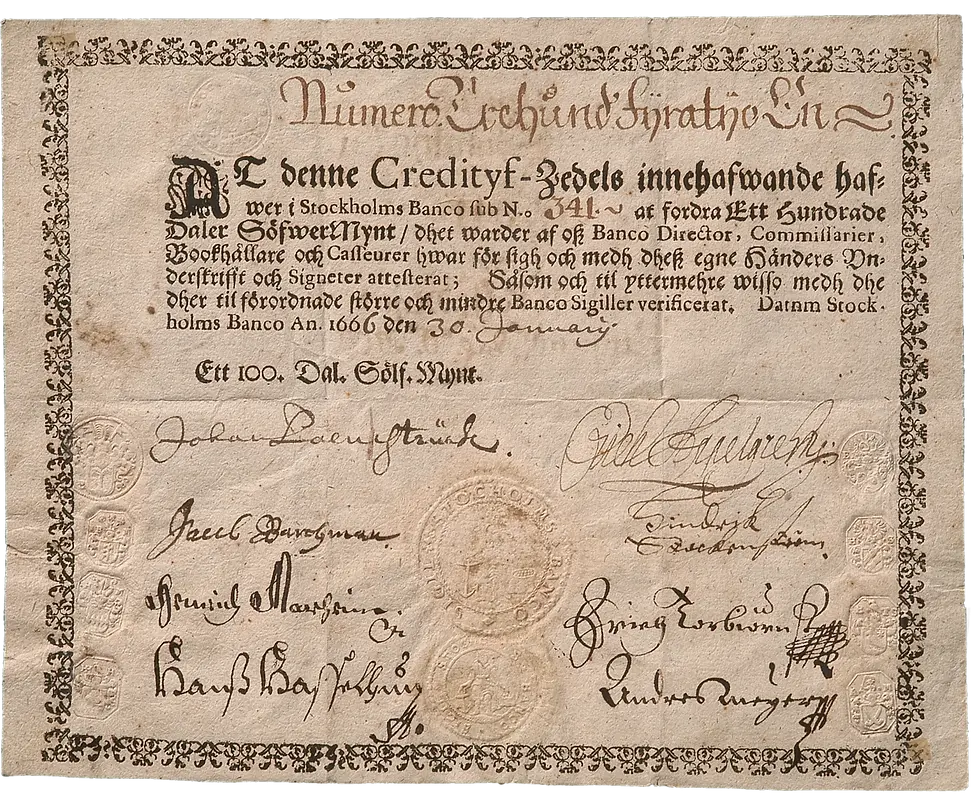 Numero Trehund Fyratyo En
AT denne Credityf-Zedels innehafwande haf-
wer i Stockholms Banco sub N.o 341. at fordra Ett Hundrade
Daler SöfwerMynt / dhet warder af oß Banco Director, Commissarier,
Bookhållare och Casseurer hwar för sigh och medh dheß egne Händers Vn-
derskrifft och Signeter attesterat; Såsom och til yttermehre wisso medh dhe
dher til förordnade större och mindre Banco Sigiller verificerat. Datum Stock-
holms Banco An. 1666 den 30. January
Ett 100. Dal. Sölf. Mynt.
Johan
Jacob Barchman
Hindrijk
Henrich
Erich Torbiörn
Hanß Hasselhuug
Andres Meyer
STOCHOLMS BANCO